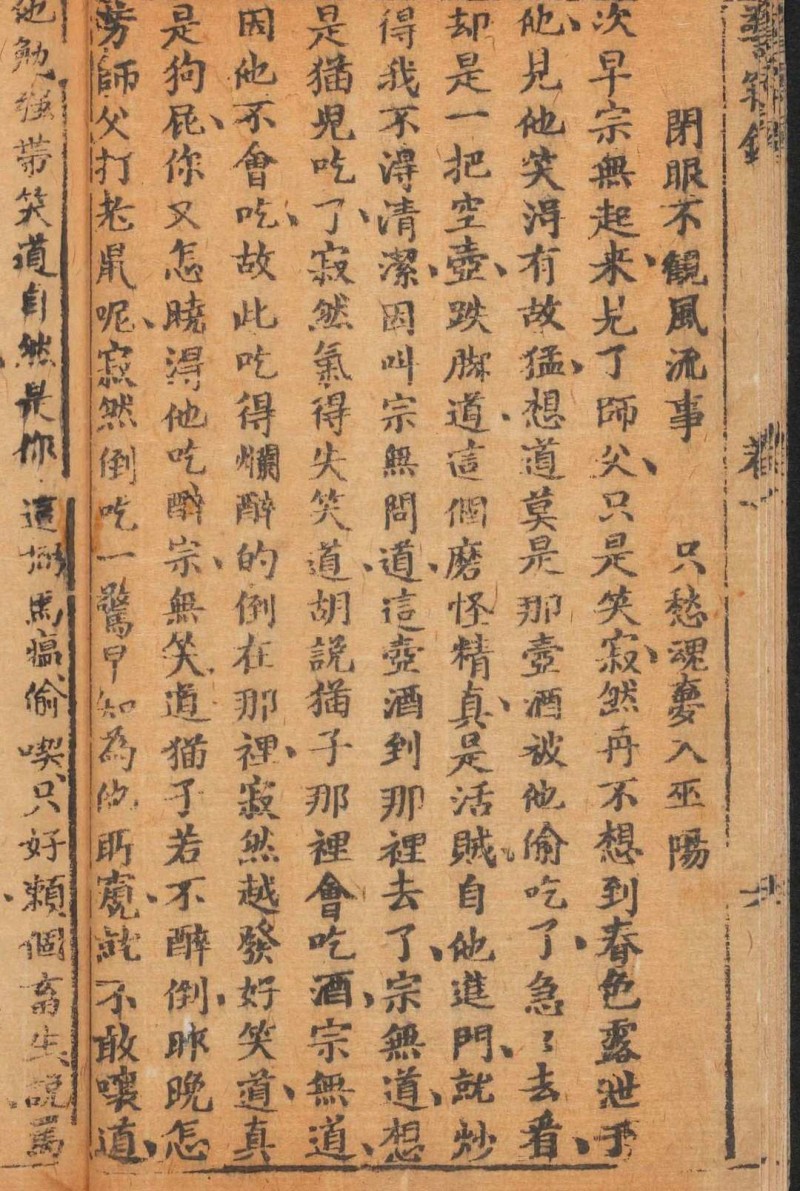 閉眼不觀風流事　只愁魂夢入巫陽
次早宗無起来見了師父只是笑寂然再不想到春色露泄于
他見他笑淂有故猛想道莫是那壺酒被他偷吃了急〻去看
却是一把空壺跌脚道這個磨怪精真是活賊自他進門就炒
得我不淂清潔因叫宗無問道這壺酒到那裡去了宗無道想
是猫兒吃了寂然氣得失笑道胡説猫子那裡會吃酒宗無道
因他不會吃故此吃得爛醉的倒在那裡寂然越發好笑道真
是狗屁你又怎曉淂他吃醉宗無笑道猫子若不醉倒昨晚怎
劳師父打老鼠呢寂然倒吃一驚早知為他所窺就不敢嚷道
他勉強帶笑道自然是你這馬瘟偷喫只好賴個畜生説罵